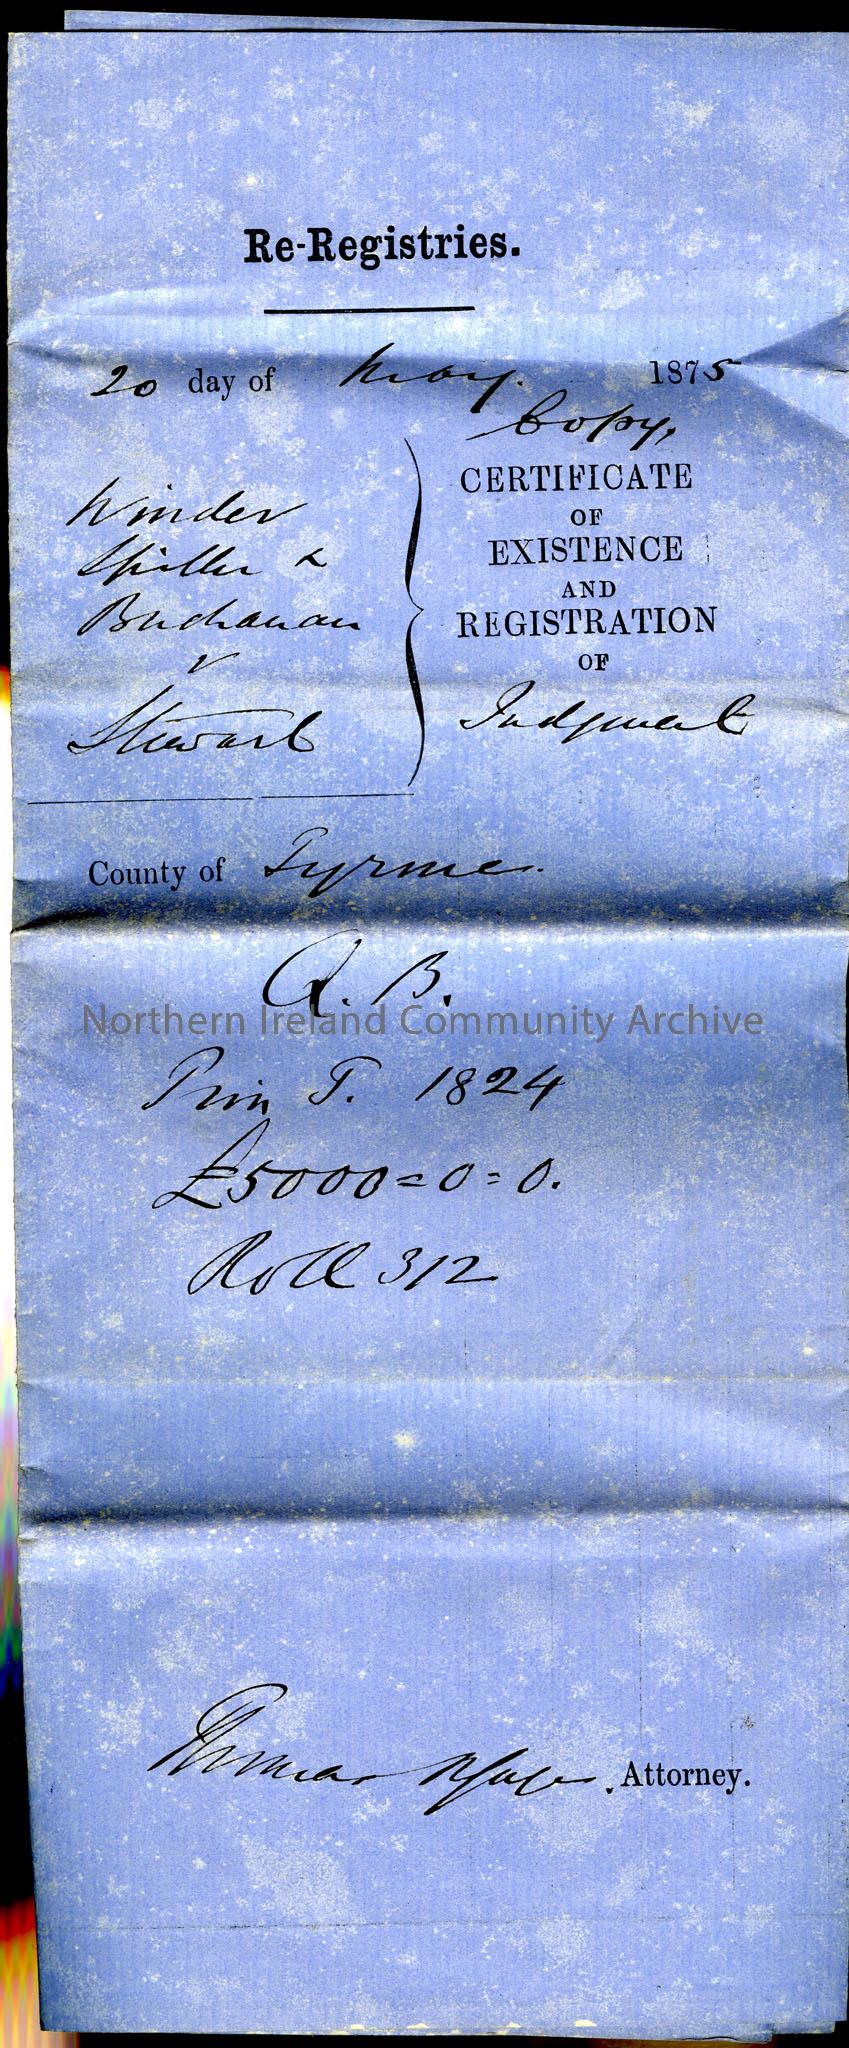 Re-Registries.
20 day of May. 1875
Copy,
CERTIFICATE
OF
EXISTENCE
AND
REGISTRATION
OF
Judgment
Winder
Spiller &
Buchanan
v
Stewart
County of Tyrone.
Q. B.
Northern Ireland Community Archive
Trin T. 1824
£5000=0=0.
Roll 312
Thomas Attorney.